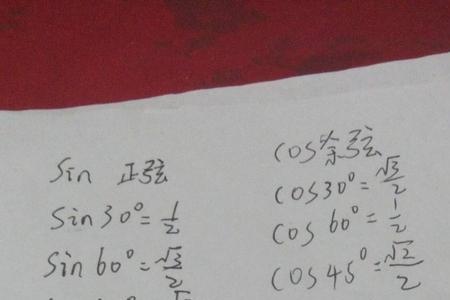 sin 正弦
sin30°=1/2
sin60°=√3/2
cos余弦
cos30°=√3/2
cos60°=1/2
cos45°=√2/2